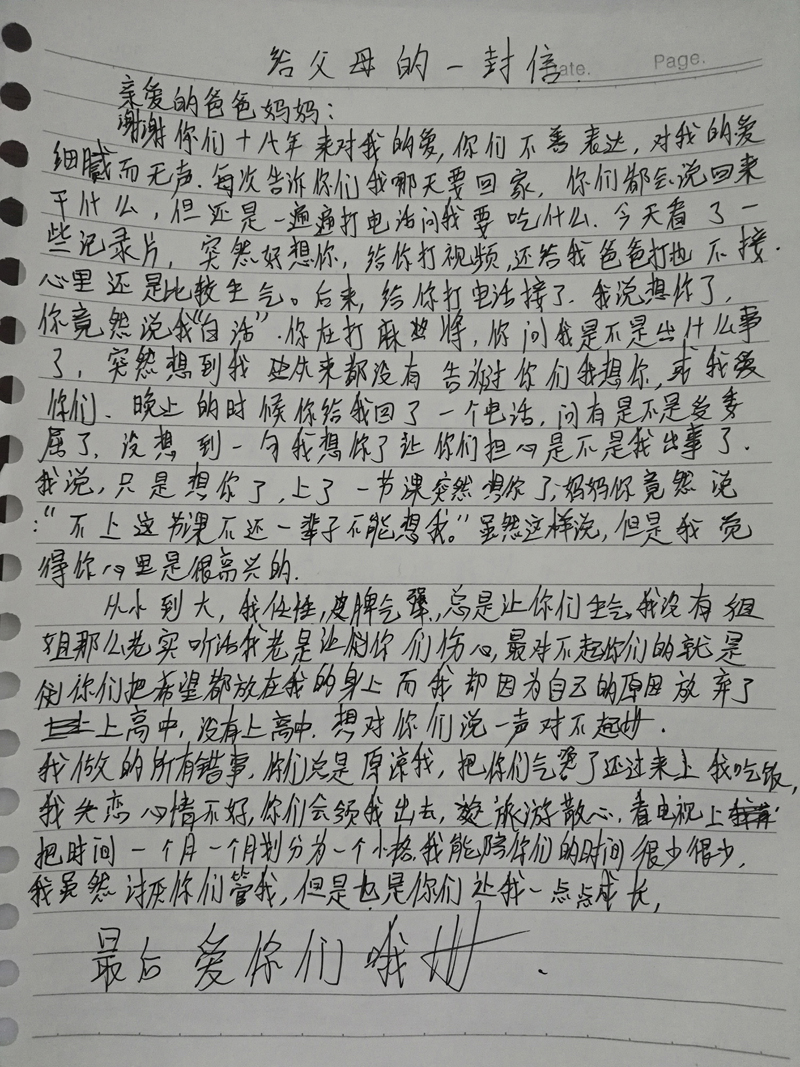 给父母的一封信
ate.
Page.
亲爱的爸爸妈妈：
谢谢你们十八年来对我的爱，你们不善表达，对我的爱
细腻而无声．每次告诉你们我哪天要回家，你们都会说回来
干什么，但还是一遍遍打电话问我要吃什么．今天看了一
些记录片，突然好想你，给你打视频，还给我爸爸打也不接．
心里还是比较生气。后来，给你打电话接了．我说想你了，
你竟然说我“白活”．你在打麻将，你问我是不是出什么事
了，突然想到我从来都没有告诉过你们我想你，或我爱
你们．晚上的时候你给我回了一个电话，问有是不是受委
屈了，没想到一句我想你了让你们担心是不是我出事了．
我说，只是想你了，上了一节课突然想你了，妈妈你竟然说
：“不上这节课不还一辈子不能想我。”虽然这样说，但是我觉
得你心里是很高兴的．
从小到大，我任性，脾气犟，总是让你们生气，我没有姐
姐那么老实听话我老是让你们伤心，最对不起你们的就是
你们把希望都放在我的身上而我却因为自己的原因放弃了
上高中，没有上高中．想对你们说一声对不起．
我做的所有错事，你们总是原谅我，把你们气哭了还过来上我吃饭，
我失恋心情不好，你们会领我出去，旅游散心，看电视上
把时间一个月一个月划分为一个小格，我能陪你们的时间很少很少，
我虽然讨厌你们管我，但是也是你们让我一点点成长，
最后爱你们哦